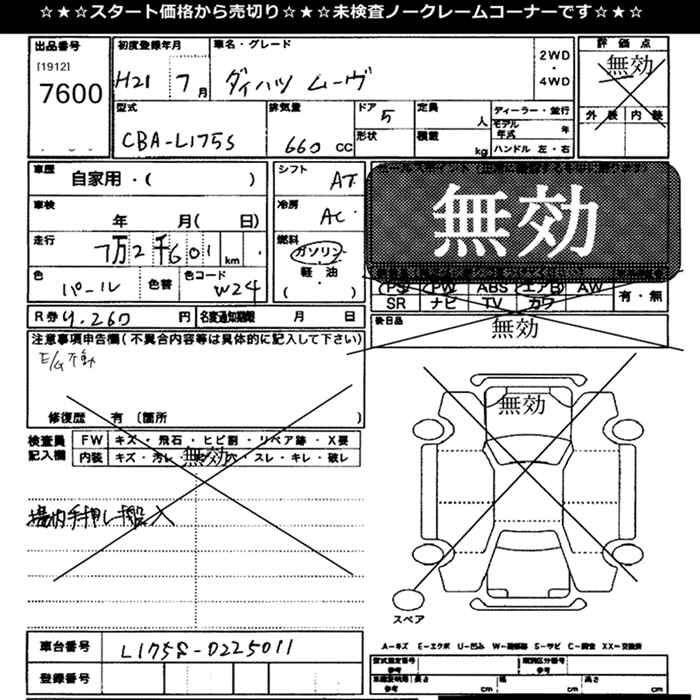 ☆★☆★スタート価格から売切り☆★☆★未検査ノークレームコーナーです☆★☆
出品番号 初度登録年月 車名・グレード 評価点
[1912] 7600 H21 7月 ダイハツ ムーヴ 2WD・4WD 無効
型式 排気量 ドア 5 定員 人 ディーラー・並行 外装 内装
CBA-L175S 660 CC 形状 積載 kg モデル年式 年
ハンドル 左・右
車歴 自家用・( ) シフト AT
無効
車検 年 月( 日) 冷房 AC
走行 7万2千601 km 燃料 ガソリン
(PS) (PW) ABS エアB AW 有・無
色 パール 色替 色コード W24 軽油 ( )
SR ナビ TV カワ
R券 9.260 円 名変通知期限 月 日 後日品
無効
注意事項申告欄(不具合内容等は具体的に記入して下さい)
E/G不動
修復歴 有 (箇所 )
無効
検査員記入欄 FW キズ・飛石・ヒビ割・リペア跡・X要
内装 キズ・汚レ・ 穴・スレ・キレ・破レ
無効
場内手押し搬入
スペア
車台番号 L175S-0225011
A=キズ E=エクボ U=凹み W=補修跡 S=サビ C=腐食 XX=交換済
型式指定番号 参考 類別区分番号 参考
登録番号 長さ cm 幅 cm 高さ cm
参考